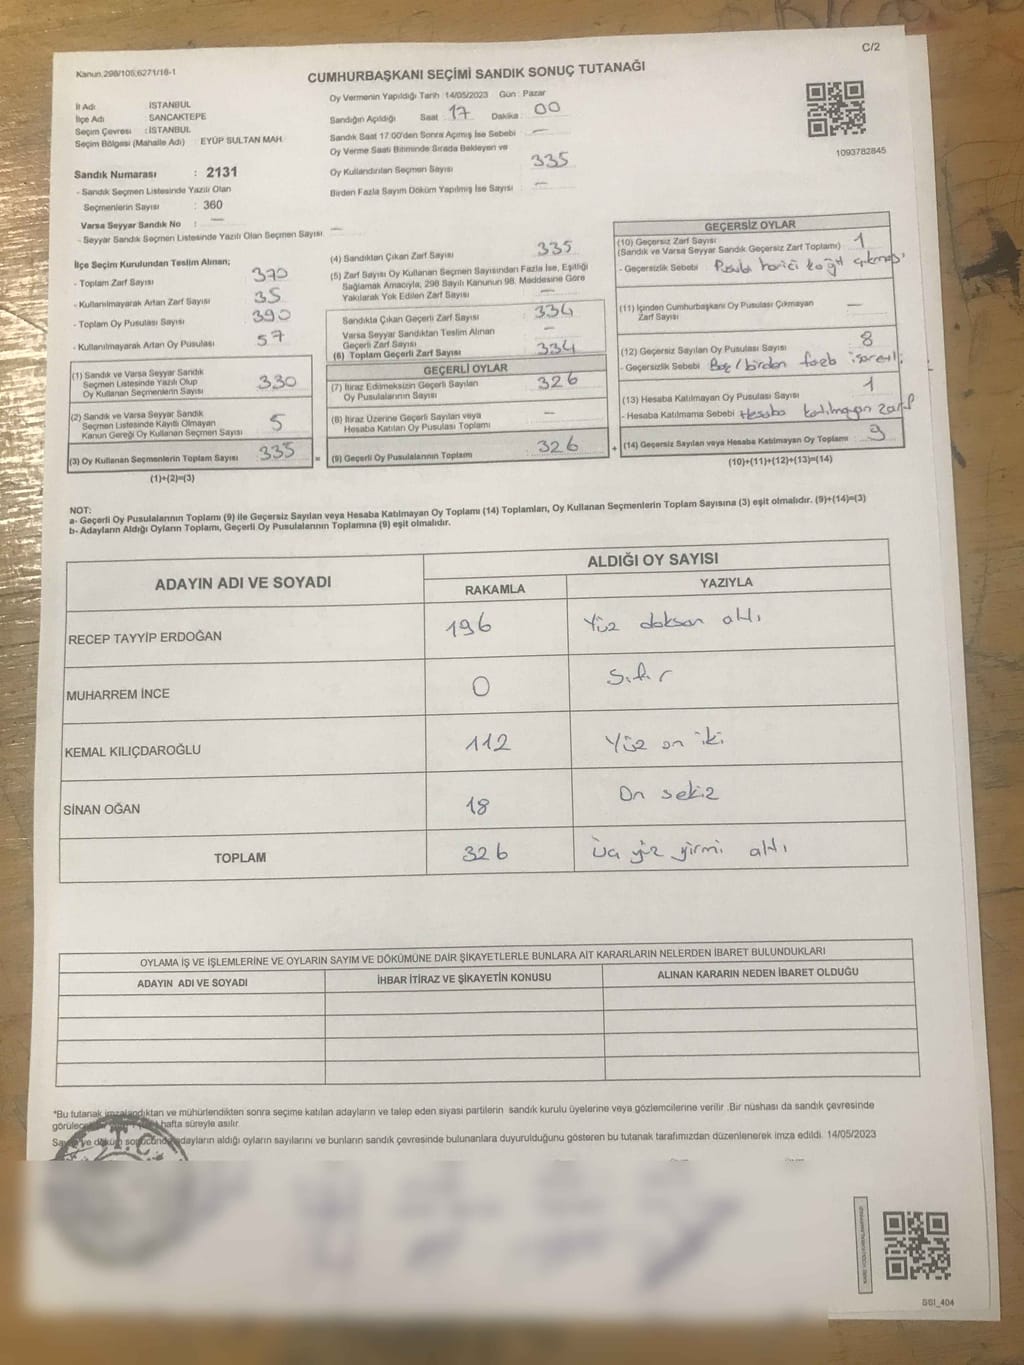 C/2
Kanun.298/105;6271/16-1
CUMHURBAŞKANI SEÇİMİ SANDIK SONUÇ TUTANAĞI
İl Adı İSTANBUL
İlçe Adı SANCAKTEPE
Seçim Çevresi : İSTANBUL
Seçim Bölgesi (Mahalle Adı) EYÜP SULTAN MAH.
Sandık Numarası : 2131
- Sandık Seçmen Listesinde Yazılı Olan
Seçmenlerin Sayısı : 360
Varsa Seyyar Sandık No : —
- Seyyar Sandık Seçmen Listesinde Yazılı Olan Seçmen Sayısı —
Oy Vermenin Yapıldığı Tarih : 14/05/2023 Gün : Pazar
Sandığın Açıldığı Saat : 17 Dakika : 00
Sandık Saat 17:00'den Sonra Açımış İse Sebebi : —
Oy Verme Saati Bitiminde Sırada Bekleyen ve
Oy Kullandırılan Seçmen Sayısı 335
Birden Fazla Sayım Döküm Yapılmış İse Sayısı : —
1093782845
İlçe Seçim Kurulundan Teslim Alınan;
- Toplam Zarf Sayısı 370
- Kullanılmayarak Artan Zarf Sayısı 35
- Toplam Oy Pusulası Sayısı 390
- Kullanılmayarak Artan Oy Pusulası 57
(1) Sandık ve Varsa Seyyar Sandık
Seçmen Listesinde Yazılı Olup
Oy Kullanan Seçmenlerin Sayısı 330
(2) Sandık ve Varsa Seyyar Sandık
Seçmen Listesinde Kayıtlı Olmayan
Kanun Gereği Oy Kullanan Seçmen Sayısı 5
(3) Oy Kullanan Seçmenlerin Toplam Sayısı 335 =
(1)+(2)=(3)
(4) Sandıktan Çıkan Zarf Sayısı 335
(5) Zarf Sayısı Oy Kullanan Seçmen Sayısından Fazla İse, Eşitliği
Sağlamak Amacıyla, 298 Sayılı Kanunun 98. Maddesine Göre
Yakılarak Yok Edilen Zarf Sayısı —
Sandıkta Çıkan Geçerli Zarf Sayısı 334
Varsa Seyyar Sandıktan Teslim Alınan
Geçerli Zarf Sayısı —
(6) Toplam Geçerli Zarf Sayısı 334
GEÇERLİ OYLAR
(7) İtiraz Edilmeksizin Geçerli Sayılan
Oy Pusulasının Sayısı 326
(8) İtiraz Üzerine Geçerli Sayılan veya
Hesaba Katılan Oy Pusulası Toplamı —
(9) Geçerli Oy Pusulalarının Toplamı 326 +
GEÇERSİZ OYLAR
(10) Geçersiz Zarf Sayısı 1
(Sandık ve Varsa Seyyar Sandık Geçersiz Zarf Toplamı)
- Geçersizlik Sebebi Pusula harici kağıt çıkması
(11) İçinden Cumhurbaşkanı Oy Pusulası Çıkmayan
Zarf Sayısı —
(12) Geçersiz Sayılan Oy Pusulası Sayısı 8
- Geçersizlik Sebebi Boş / birden fazla işaretli
(13) Hesaba Katılmayan Oy Pusulası Sayısı 1
- Hesaba Katılmama Sebebi Hesaba katılmayan zarf
(14) Geçersiz Sayılan veya Hesaba Katılmayan Oy Toplamı 9
(10)+(11)+(12)+(13)=(14)
NOT:
a- Geçerli Oy Pusulalarının Toplamı (9) ile Geçersiz Sayılan veya Hesaba Katılmayan Oy Toplamı (14) Toplamları, Oy Kullanan Seçmenlerin Toplam Sayısına (3) eşit olmalıdır. (9)+(14)=(3)
b- Adayların Aldığı Oyların Toplamı, Geçerli Oy Pusulalarının Toplamına (9) eşit olmalıdır.
ADAYIN ADI VE SOYADI ALDIĞI OY SAYISI
RAKAMLA YAZIYLA
RECEP TAYYİP ERDOĞAN 196 Yüz doksan altı
MUHARREM İNCE 0 Sıfır
KEMAL KILIÇDAROĞLU 112 Yüz on iki
SİNAN OĞAN 18 On sekiz
TOPLAM 326 Üç yüz yirmi altı
OYLAMA İŞ VE İŞLEMLERİNE VE OYLARIN SAYIM VE DÖKÜMÜNE DAİR ŞİKAYETLERLE BUNLARA AİT KARARLARIN NELERDEN İBARET BULUNDUKLARI
ADAYIN ADI VE SOYADI İHBAR İTİRAZ VE ŞİKAYETİN KONUSU ALINAN KARARIN NEDEN İBARET OLDUĞU
*Bu tutanak imzalandıktan ve mühürlendikten sonra seçime katılan adayların ve talep eden siyasi partilerin sandık kurulu üyelerine veya gözlemcilerine verilir .Bir nüshası da sandık çevresinde
hafta süreyle asılır.
ve döküm sonucunda adayların aldığı oyların sayılarını ve bunların sandık çevresinde bulunanlara duyurulduğunu gösteren bu tutanak tarafımızdan düzenlenerek imza edildi. 14/05/2023
T.C.
SSI_404